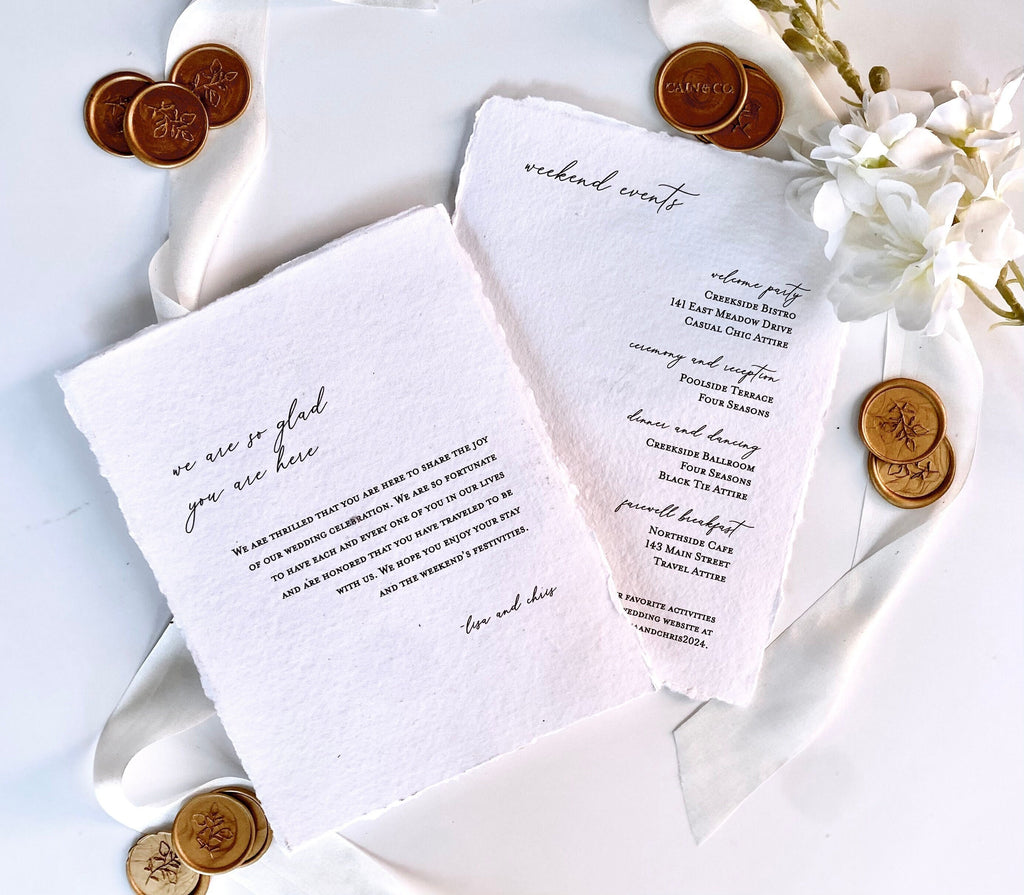 we are so glad
you are here
We are thrilled that you are here to share the joy
of our wedding celebration. We are so fortunate
to have each and every one of you in our lives
and are honored that you have traveled to be
with us. We hope you enjoy your stay
and the weekend's festivities.
-lisa and chris
weekend events
welcome party
Creekside Bistro
141 East Meadow Drive
Casual Chic Attire
ceremony and reception
Poolside Terrace
Four Seasons
dinner and dancing
Creekside Ballroom
Four Seasons
Black Tie Attire
farewell breakfast
Northside Cafe
143 Main Street
Travel Attire
favorite activities
wedding website at
andchris2024.
CAIN&CO.